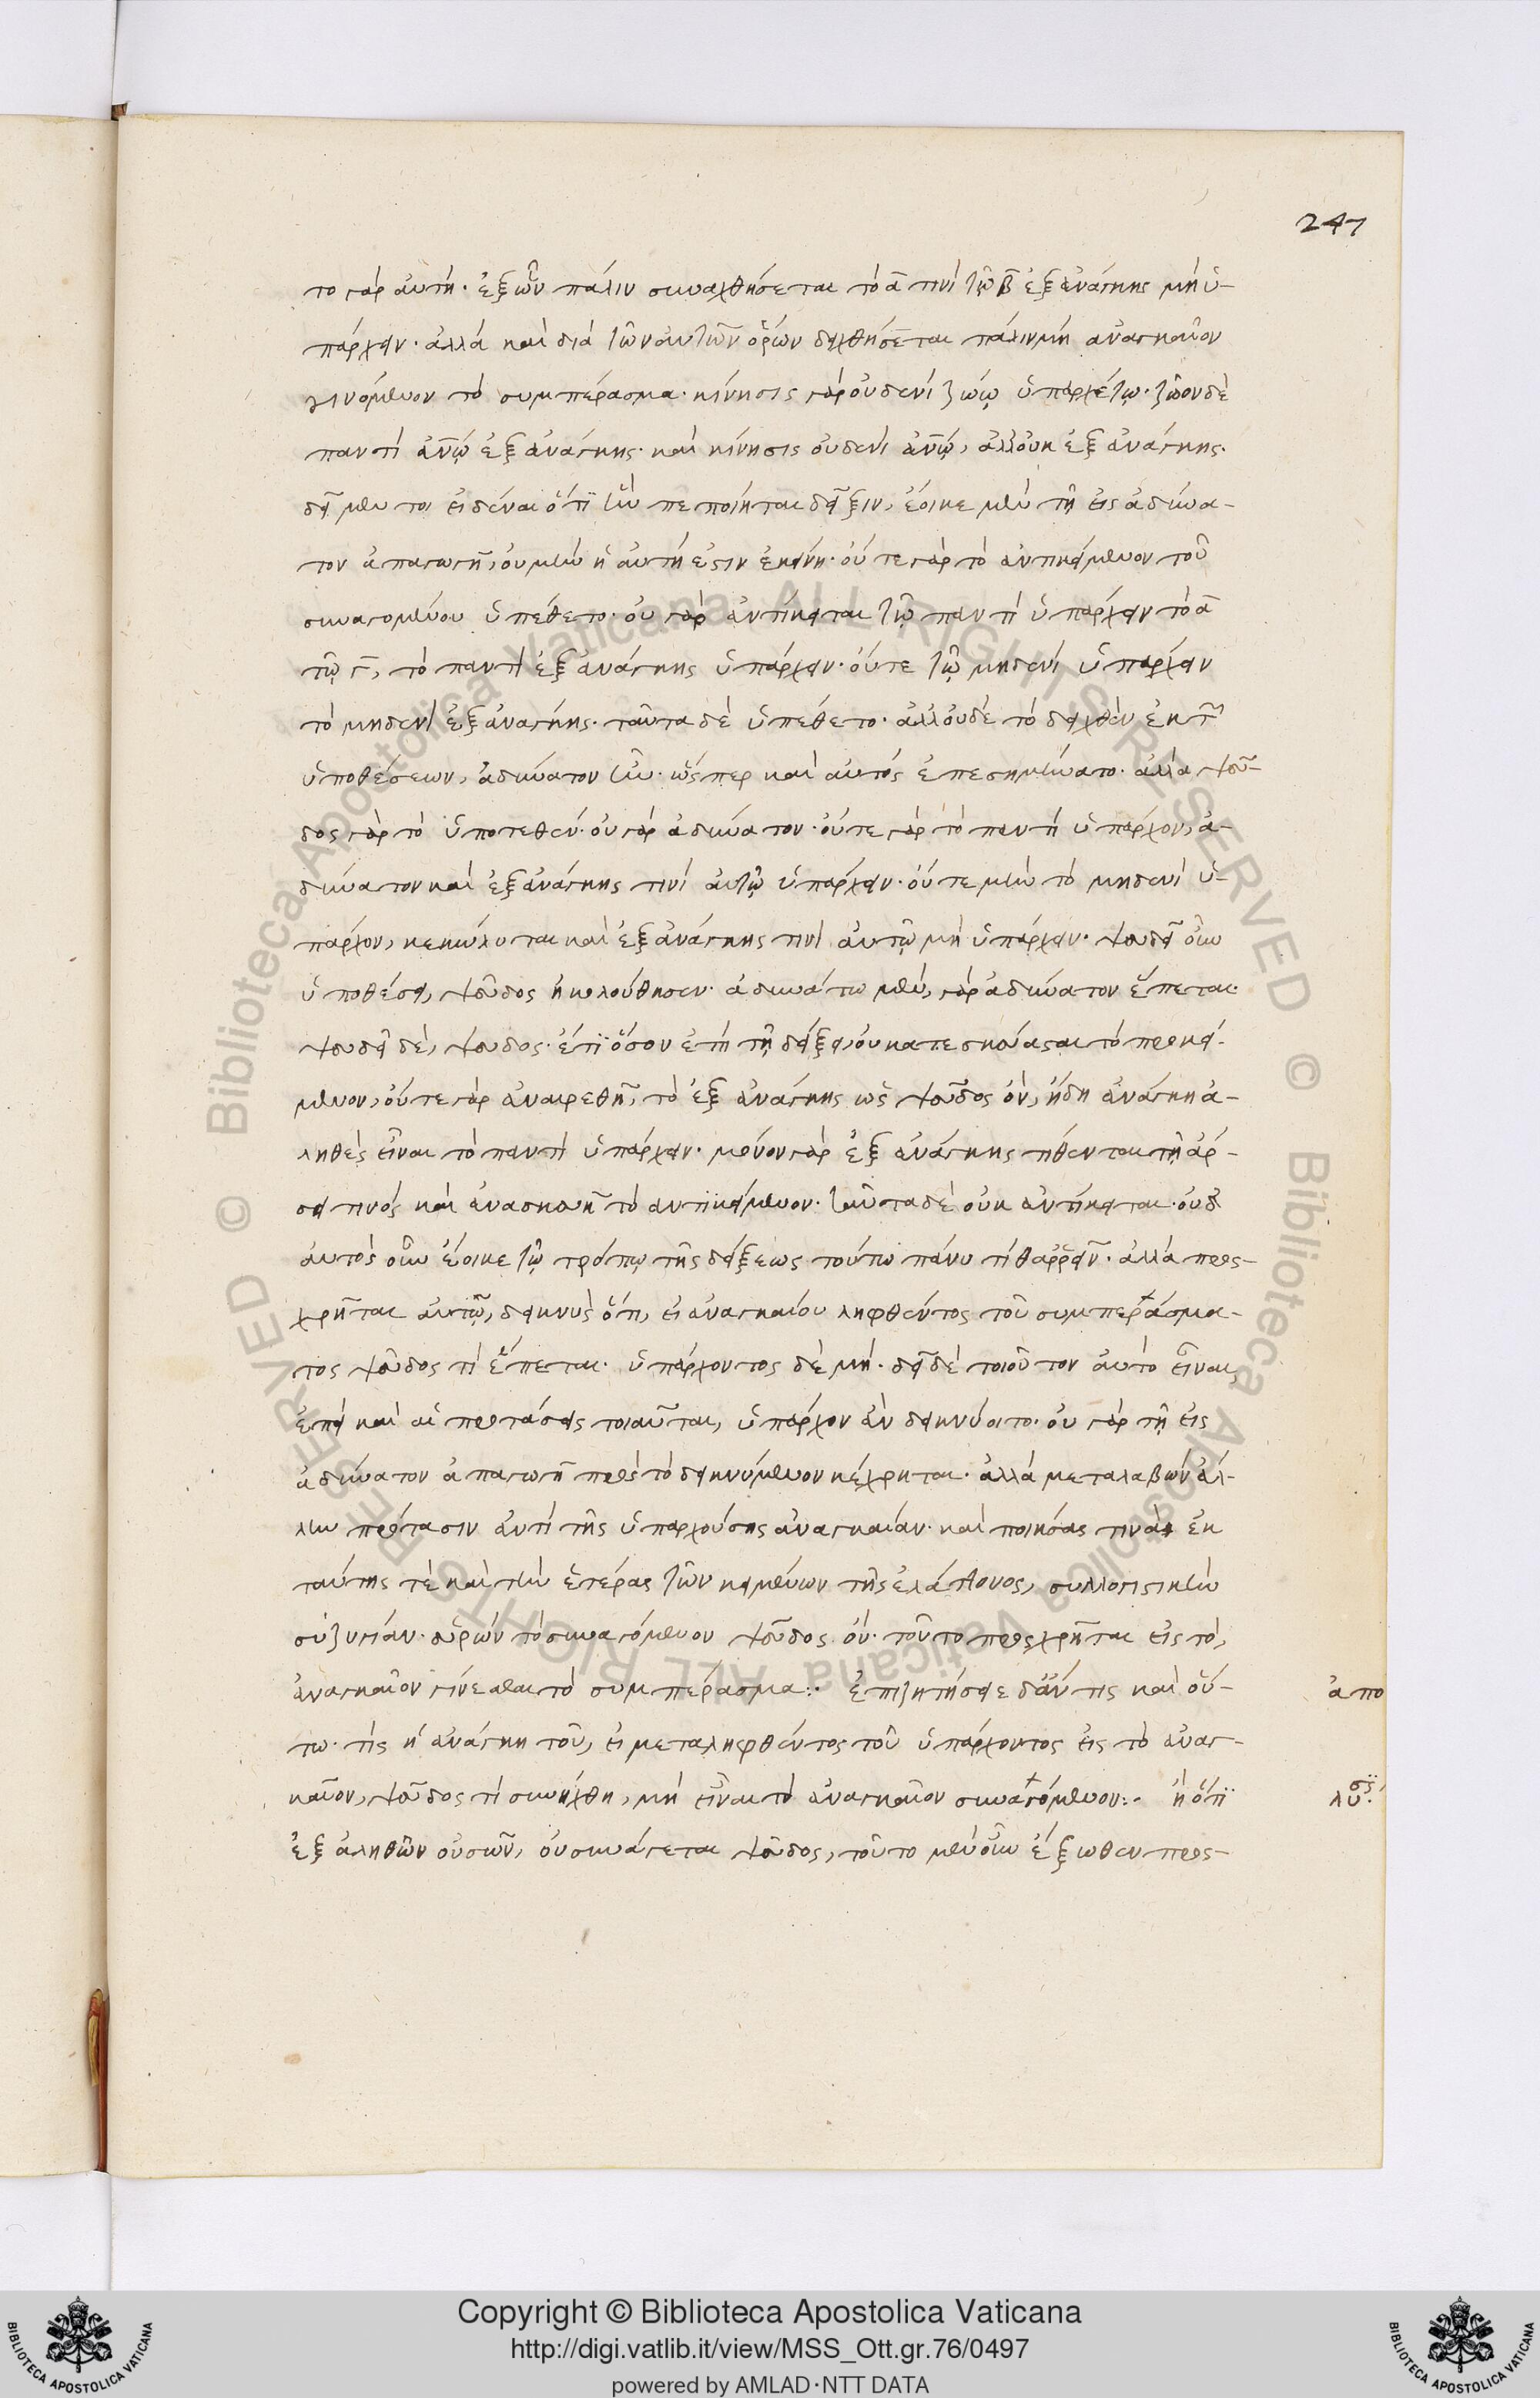 247
το γὰρ αὐτή. ἐξ ὧν πάλιν συναχθήσεται τὸ α τινὶ τῷ β ἐξ ἀνάγκης μὴ ὑ-
πάρχειν. ἀλλὰ καὶ διὰ τῶν αὐτῶν ὅρων δειχθήσεται πάλιν μὴ ἀναγκαῖον
γινόμενον τὸ συμπέρασμα. κίνησις γὰρ οὐδενὶ ζώῳ ὑπαρχέτω. ζῶον δὲ
παντὶ ἀνω ἐξ ἀνάγκης. καὶ κίνησις οὐδενὶ ἀνω, ἀλλ' οὐκ ἐξ ἀνάγκης.
δεῖ μέν τοι εἰδέναι ὅτι ἣν πεποίηται δεῖξιν, ἔοικε μὲν τῇ εἰς ἀδύνα-
τον ἀπαγωγῇ, οὐ μὴν ἡ αὐτή ἐστιν ἐκείνῃ. οὔτε γὰρ τὸ ἀντικείμενον τοῦ
συναγομένου ὑπέθετο. οὐ γὰρ ἀντίκειται τῷ παντὶ ὑπάρχειν τὸ α
τῷ γ, τὸ παντὶ ἐξ ἀνάγκης ὑπάρχειν. οὔτε τῷ μηδενὶ ὑπάρχειν
τὸ μηδενὶ ἐξ ἀνάγκης. ταῦτα δὲ ὑπέθετο. ἀλλ' οὐδὲ τὸ δειχθὲν ἐκ τ
ὑποθέσεων, ἀδύνατον ἦν. ὥσπερ καὶ αὐτὸς ἐπεσημήνατο. ἀλλὰ ψεῦ-
δος γὰρ τὸ ὑποτεθέν. οὐ γὰρ ἀδύνατον. οὔτε γὰρ τὸ παντὶ ὑπάρχον, ἀ-
δύνατον καὶ ἐξ ἀνάγκης τινὶ αὐτῷ ὑπάρχειν. οὔτε μὴν τὸ μηδενὶ ὑ-
πάρχον, κεκώλυται καὶ ἐξ ἀνάγκης τινὶ αὐτῷ μὴ ὑπάρχειν. ψευδεῖ οὖν
ὑποθέσει, ψεῦδος ἠκολούθησεν. ἀδυνάτῳ μὲν, γὰρ ἀδύνατον ἕπεται.
ψευδεῖ δὲ, ψεῦδος. ἔτι ὅσον ἐπὶ τῇ δείξει, οὐ κατεσκεύασται τὸ προκεί-
μενον, οὔτε γὰρ ἀναιρεθῇ, τὸ ἐξ ἀνάγκης ὡς ψεῦδος ὂν, ἤδη ἀνάγκη ἀ-
ληθὲς εἶναι τὸ παντὶ ὑπάρχειν. μόνον γὰρ ἐξ ἀνάγκης τίθενται τῇ ἄρ-
σει τινὸς καὶ ἀνασκευῇ τὸ ἀντικείμενον. ταῦτα δὲ οὐκ ἀντίκειται. οὐδ
αὐτὸς οὖν ἔοικε τῷ τρόπῳ τῆς δείξεως τούτῳ πάνυ τι θαρρεῖν. ἀλλὰ προσ-
χρῆται αὐτῷ, δεικνὺς ὅτι, εἰ ἀναγκαίου ληφθέντος τοῦ συμπεράσμα-
τος ψεῦδός τι ἕπεται. ὑπάρχοντος δὲ μή. δεῖ δὲ τοιοῦτον αὐτὸ εἶναι,
ἐπεὶ καὶ αἱ προτάσεις τοιαῦται, ὑπάρχον ἂν δεικνύοιτο. οὐ γὰρ τῇ εἰς
ἀδύνατον ἀπαγωγῇ πρὸς τὸ δεικνύμενον κέχρηται. ἀλλὰ μεταλαβὼν ἄλ-
λην πρότασιν ἀντὶ τῆς ὑπαρχούσης ἀναγκαίαν. καὶ ποιήσας τινὰ ἐκ
ταύτης τὲ καὶ τὴν ἑτέρας τῶν κειμένων τῆς ἐλάττονος, συλλογιστικὴν
συζυγίαν. εὑρὼν τὸ συναγόμενον ψεῦδος ὄν. τοῦτο προσχρῆται εἰς τὸ,
ἀναγκαῖον γίνεσθαι τὸ συμπέρασμα:. ἐπιζητήσειε δ' ἄν τις καὶ οὕ-
ἀπο
τω. τίς ἡ ἀνάγκη τοῦ, εἰ μεταληφθέντος τοῦ ὑπάρχοντος εἰς τὸ ἀναγ-
καῖον, ψεῦδός τι συνήχθη, μὴ εἶναι τὸ ἀναγκαῖον συναγόμενον:. ἢ ὅτι
λύσ
ἐξ ἀληθῶν οὐσῶν, οὐ συνάγεται ψεῦδος, τοῦτο μὲν οὖν ἔξωθεν προσ-
Copyright © Biblioteca Apostolica Vaticana
http://digi.vatlib.it/view/MSS_Ott.gr.76/0497
powered by AMLAD·NTT DATA